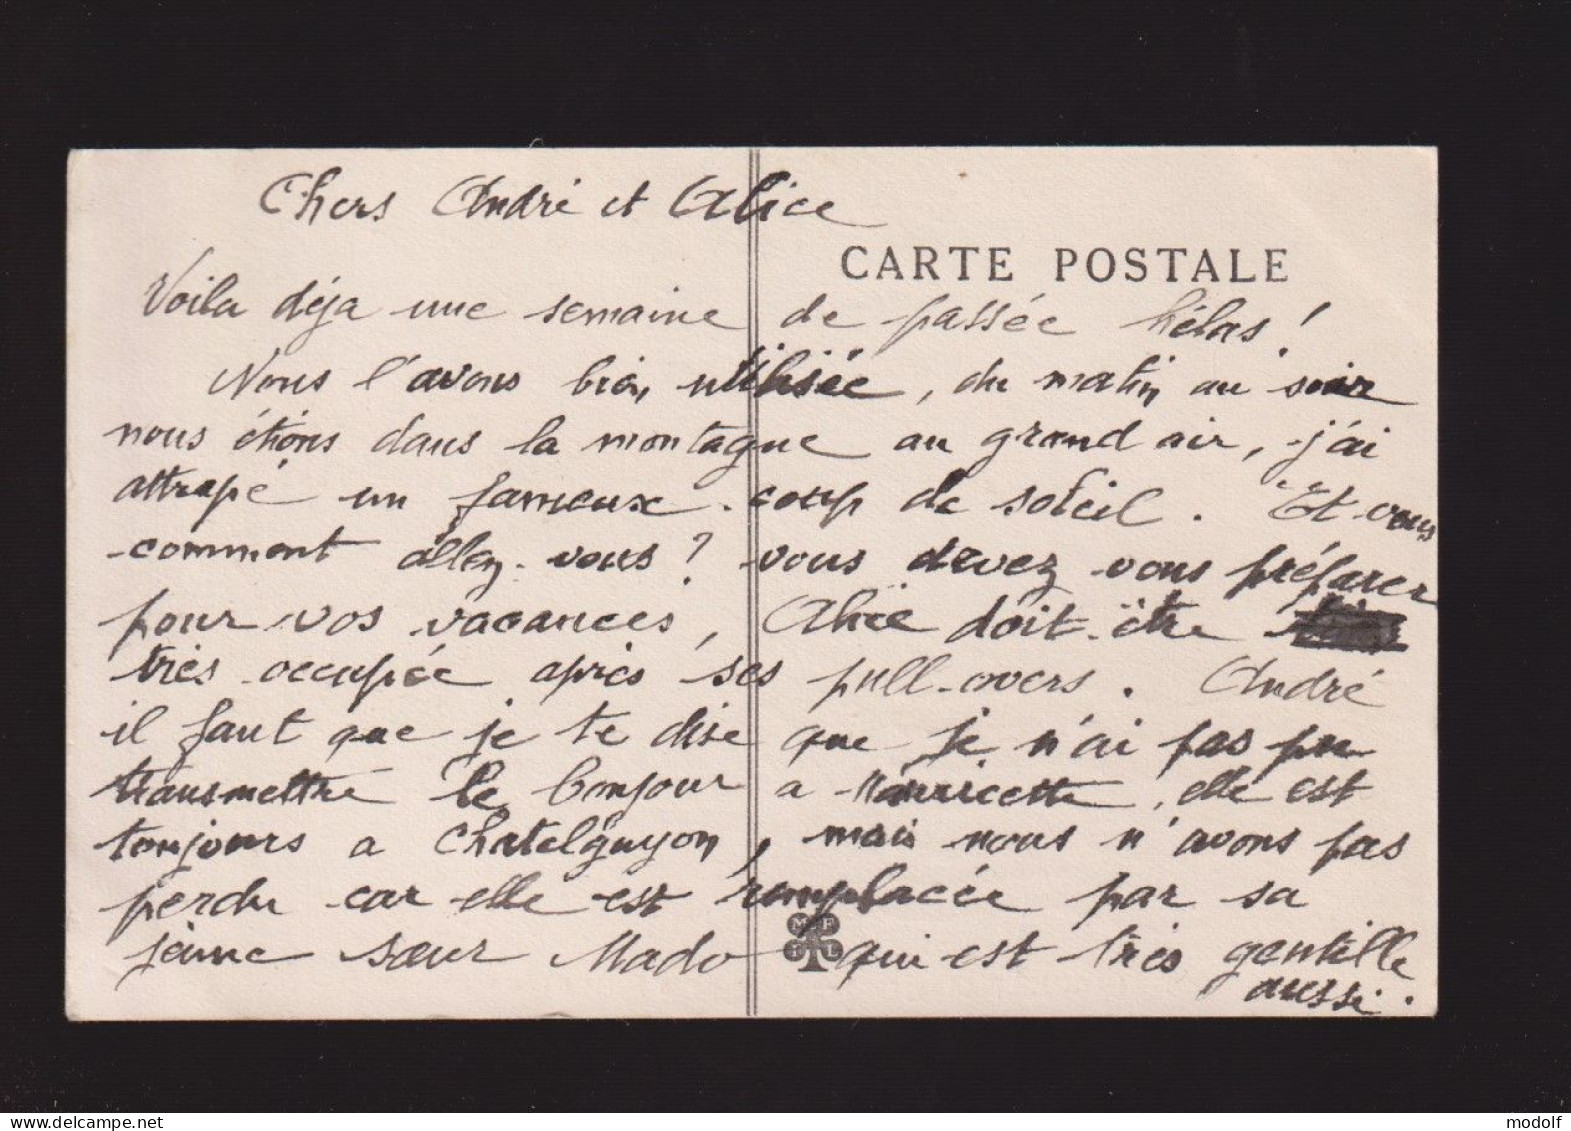 Chers André et Alice
CARTE POSTALE
Voila déja une semaine de passée hélas!
Nous l'avons bien utilisée, du matin au soir
nous étions dans la montagne au grand air, j'ai
attrapé un fameux coup de soleil. Et vous
comment allez-vous? vous devez vous préparer
pour vos vacances, Alice doit être
très occupée après ses pull-overs. André
il faut que je te dise que je n'ai pas pu
transmettre le bonjour a Mauricette, elle est
toujours a Chatelguyon, mais nous n'avons pas
perdu car elle est remplacée par sa
jeune sœur Mado qui est très gentille
aussi.
delcampe.net
modolf